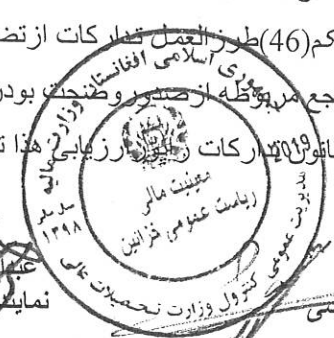 کم(46)طرزالعمل تدارکات ازتض
جع مربوطه ازصدور وصحت بودن
تدارکات راپور ارزیابی هذا ت
جمهوری اسلامی افغانستان
وزارت مالیه
معینیت مالی
ریاست عمومی خزاین
۱۳۹۸
مدیریت عمومی کنترول وزارت تحصیلات عالی
نمایند